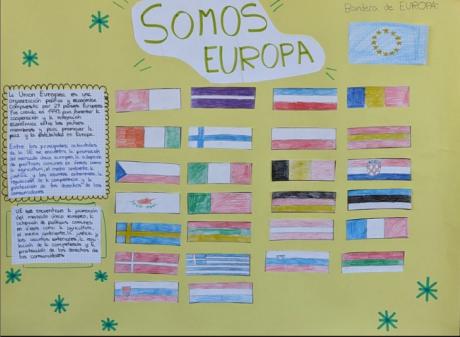 SOMOS
EUROPA
Bandera de EUROPA:
La Unión Europea es una
organización política y económica
compuesta por 27 países Europeos
Fue creada en 1993 para fomentar la
cooperación y la integración
económica entre los países
miembros y para promover la
paz y la estabilidad en Europa.
Entre las principales actividades
de la UE se encuentra la promoción
del mercado único europeo, la adopción
de políticas comunes en áreas como
la agricultura, el medio ambiente, la
justicia y los asuntos exteriores, la
regulación de la competencia y la
protección de los derechos de los
consumidores
UE se encuentran la promoción
del mercado único europeo, la
adopción de políticas comunes
en áreas como la agricultura,
el medio ambiente, la justicia y
los asuntos exteriores, la regu-
lación de la competencia y la
protección de los derechos de
los consumidores